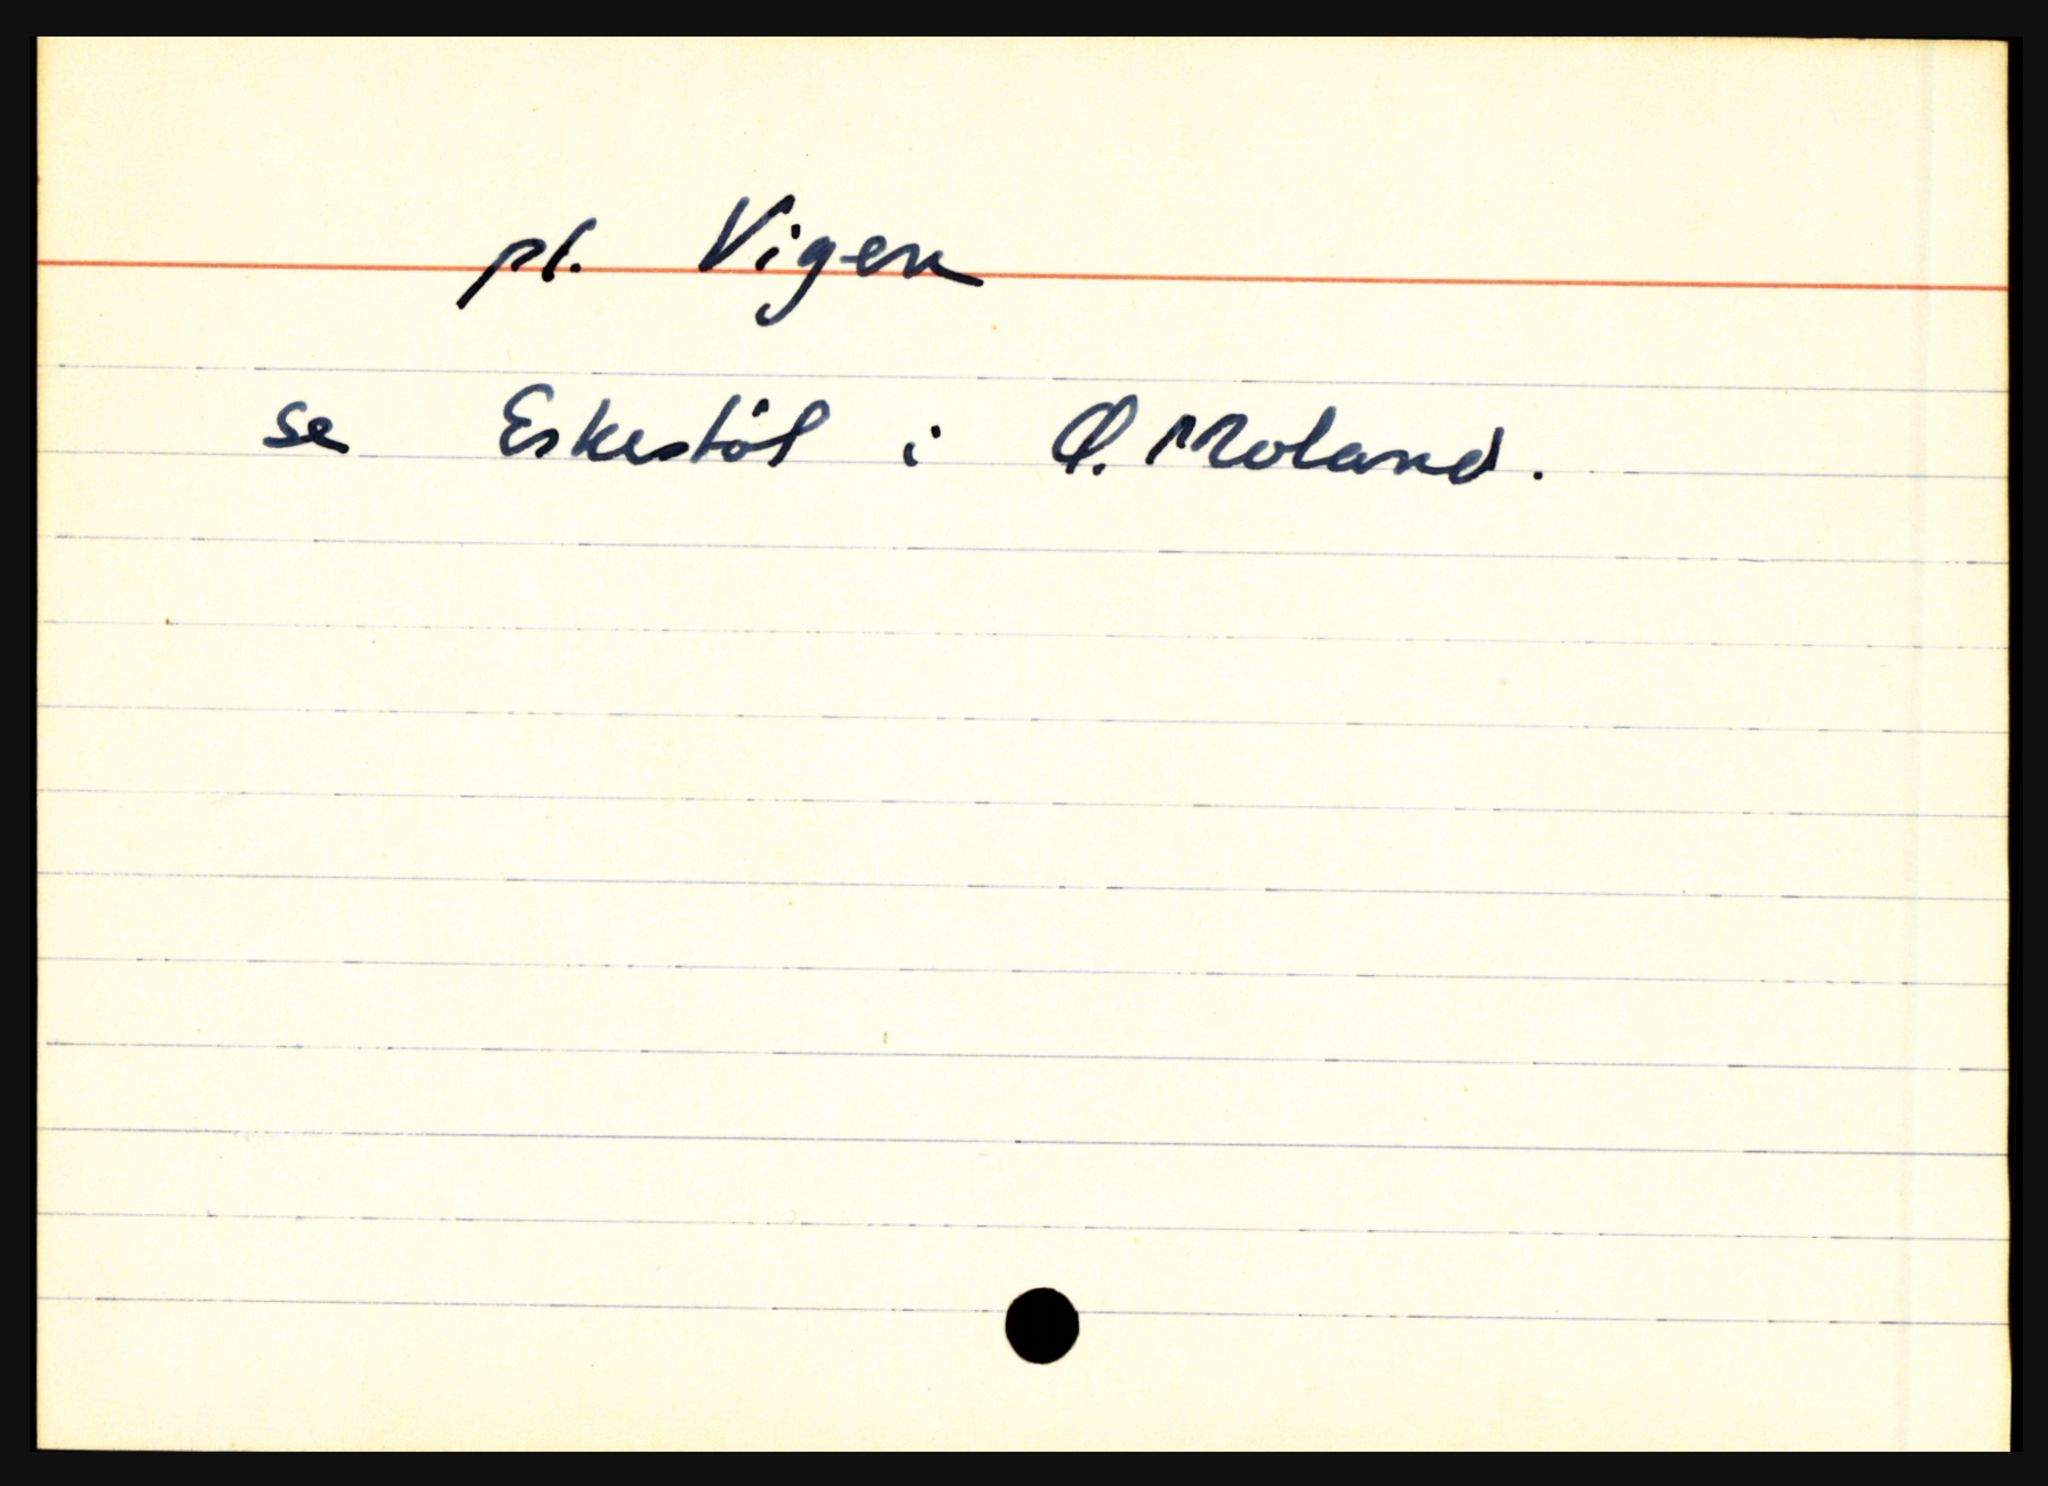 pl. Vigen
se Eskestøl i Ø. Moland.